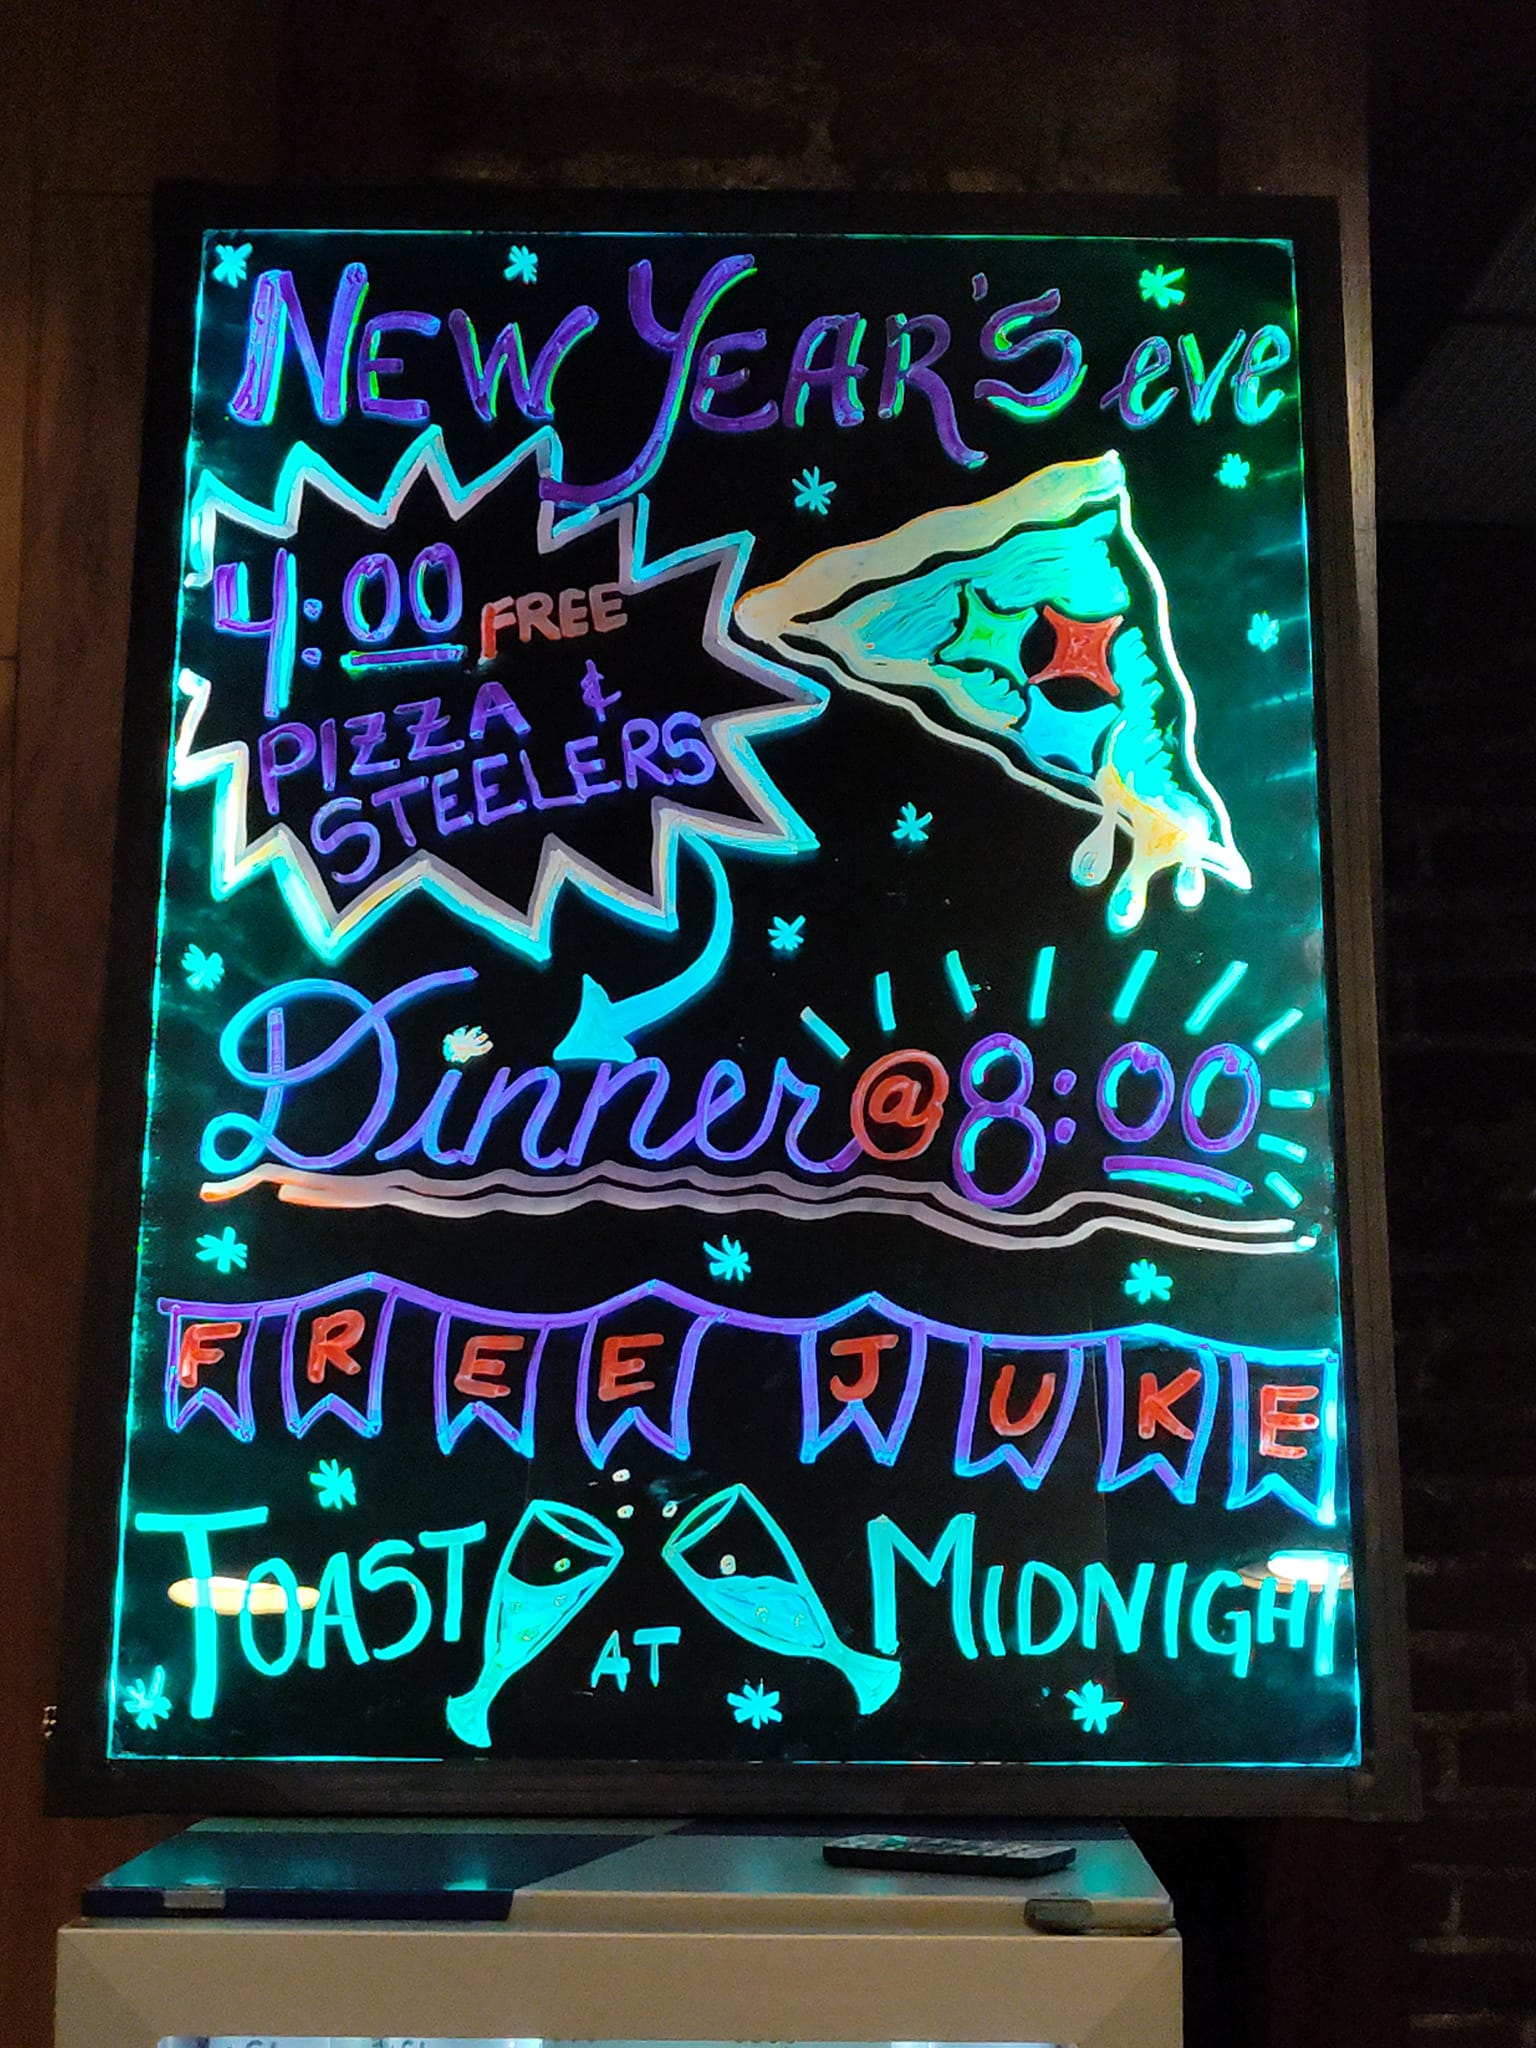 NEW YEAR'S eve
4:00 FREE
PIZZA &
STEELERS
Dinner @ 8:00
FREE JUKE
TOAST AT MIDNIGHT